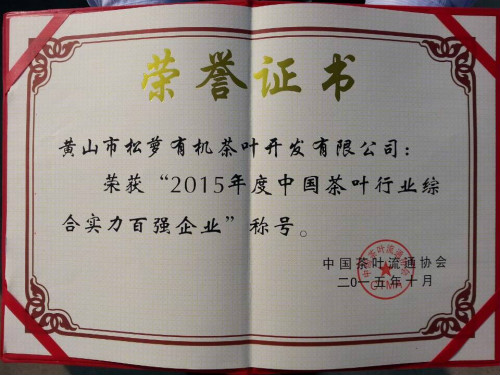 荣誉证书
黄山市松萝有机茶叶开发有限公司：
荣获“2015年度中国茶叶行业综
合实力百强企业”称号。
中国茶叶流通协会
二0一五年十月